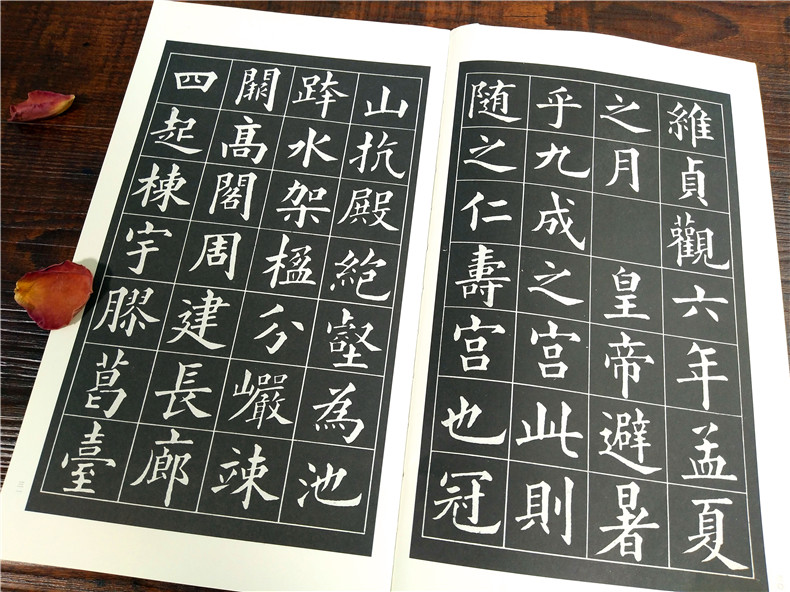 維貞觀六年孟夏
之月 皇帝避暑
乎九成之宮此則
随之仁壽宮也冠
山抗殿絕壑為池
跨水架楹分巖竦
闕髙閣周建長廊
四起棟宇膠葛臺